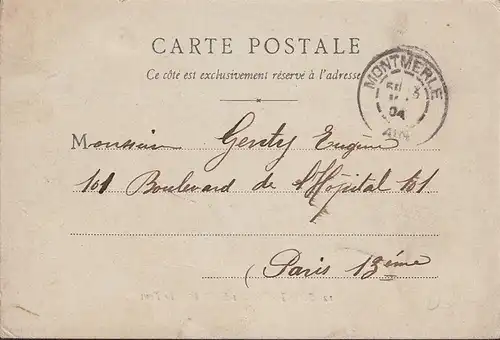 CARTE POSTALE
Ce côté est exclusivement réservé à l'adresse
MONTMERLE
04
AIN
Monsieur Genty Eugène
101 Boulevard de l'Hôpital 101
Paris 13ème